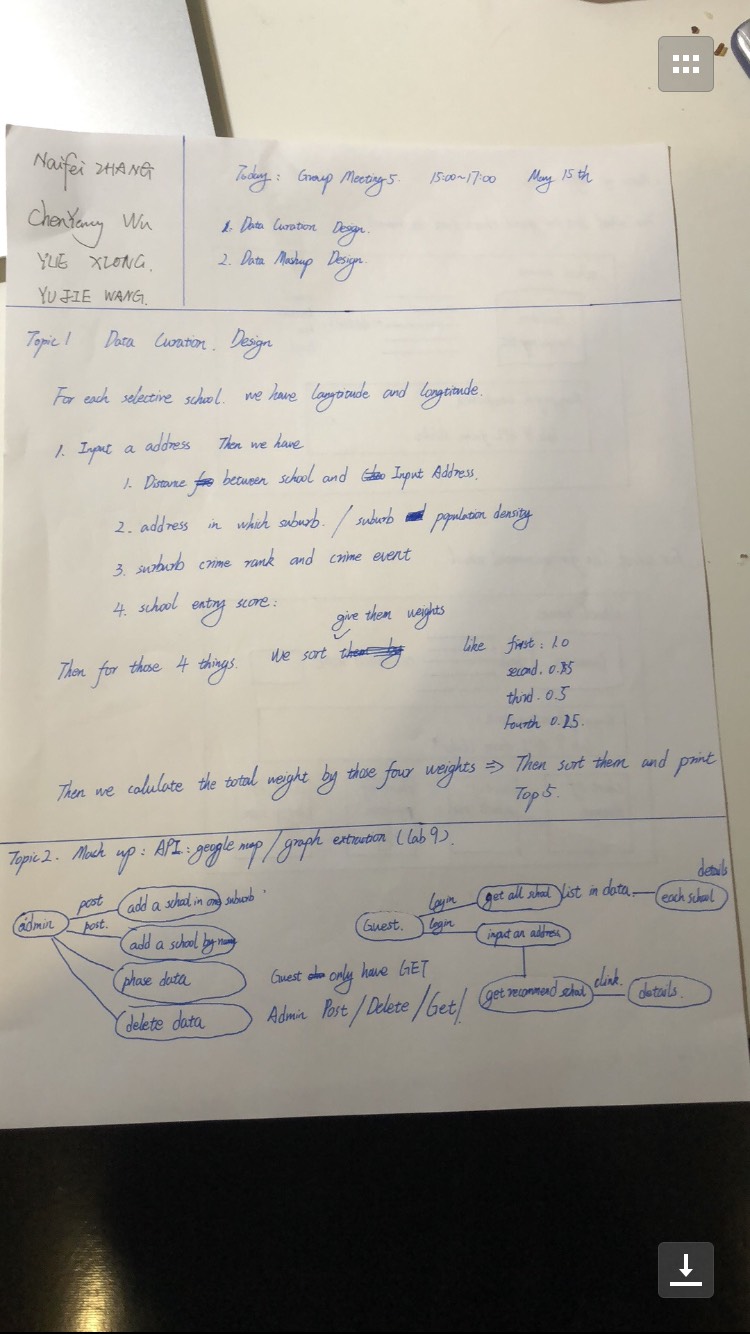 Naifei ZHANG
ChenYang Wu
YUE XIONG.
YUJIE WANG.
Today: Group Meeting 5. 15:00~17:00 May 15th
1. Data Curation Design.
2. Data Mashup Design.
Topic 1 Data Curation. Design
For each selective school. we have langtitude and longtitude.
1. Input a address Then we have
1. Distance between school and Input Address.
2. address in which suburb. / suburb population density
3. surburb crime rank and crime event
4. school entry score:
give them weights
Then for those 4 things. We sort like first: 1.0
second. 0.85
third. 0.5
Fourth 0.25.
Then we calulate the total weight by those four weights ⇒ Then sort them and print
Top 5.
Topic 2. Mach up: API: geogle map / graph extraction (lab 9).
admin
post add a school in one suburb
post. add a school by name
phase data
delete data
Guest only have GET
Admin Post / Delete / Get /
Guest.
login get all school list in data. each school details
login input an address
get recommend school clink. details.